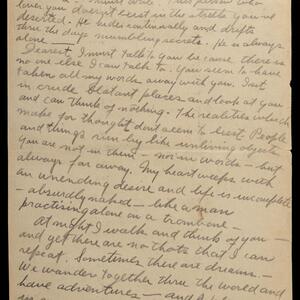 lover you doesn't exist in the streets you've
deserted. He hides continually and drifts
thru the days mumbling secrets. He is always
alone.
Dearest, I must talk to you because there is
no one else I can talk to. You seem to have
taken all my words away with you. I sit
in crude distant places and look at you
and can think of nothing. The realities which
make for thought don't seem to exist. People
and things run by like unliving objects
you are not in them — nor in words — but
always far away. My heart weeps with
an unending desire and life is incomplete
— absurdly naked — like a man
practising alone on a trombone —
At night I walk and think of you —
and yet there are no thots that I can
repeat. Sometimes there are dreams. —
We wander together thru the world and
have adventures — and